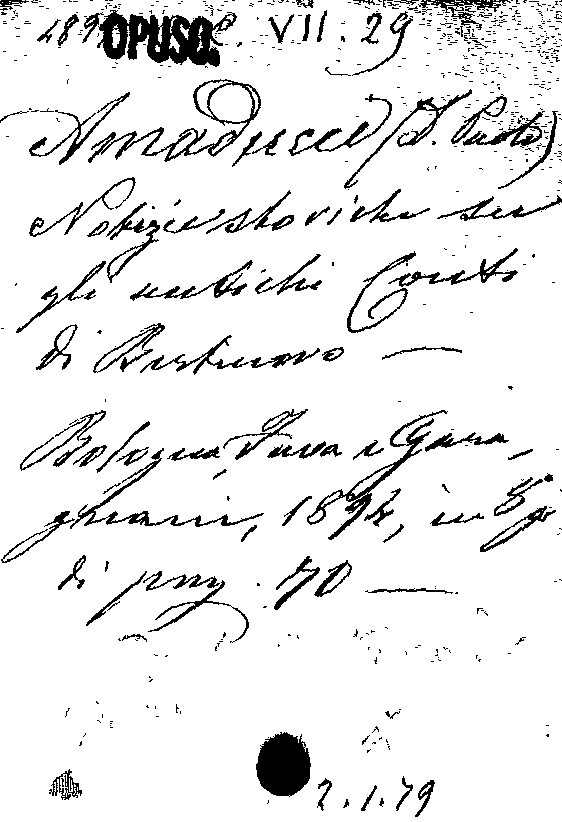 489 OPUSC. C. VII. 29
Amaducci (D. Paolo)
Notizie storiche su
gli antichi Conti
di Bertinoro —
Bologna, Fava e Gara-
gnani, 1894, in 8° gr
di pag. 70 —
2.1.79